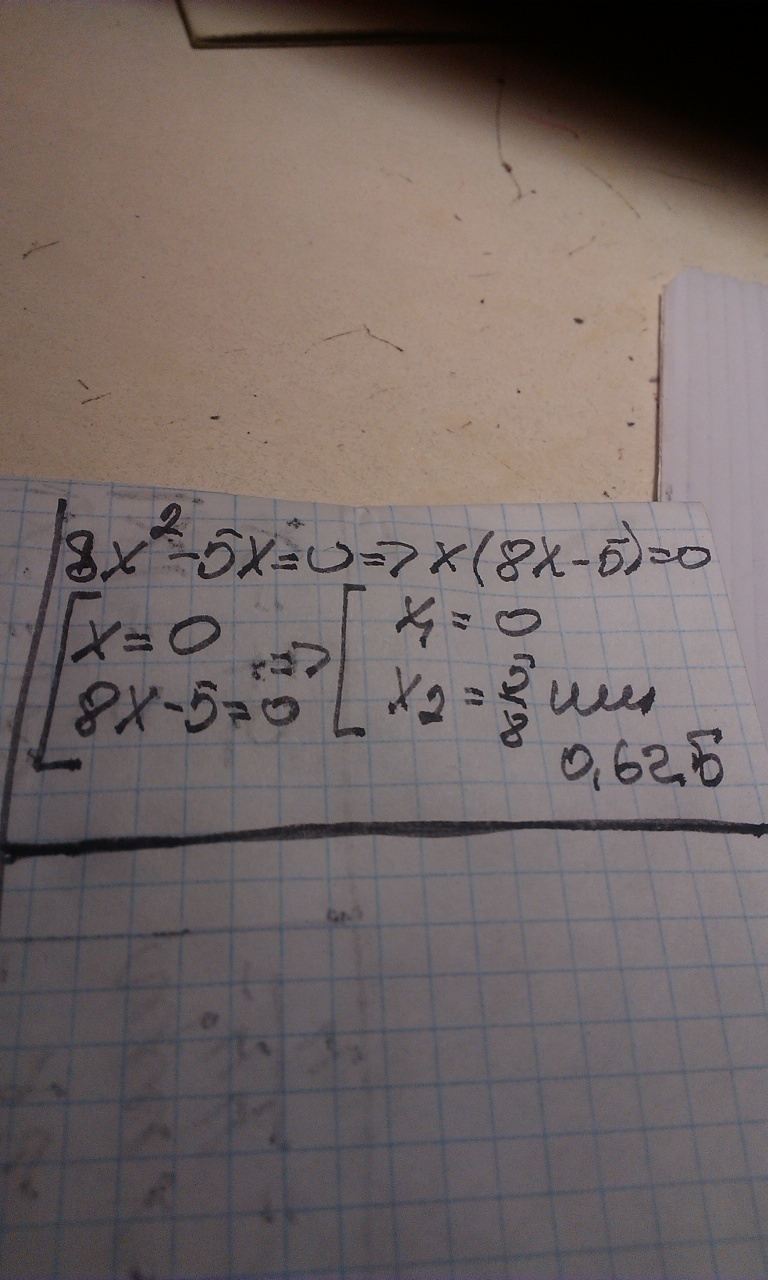 8x²-5x=0=>x(8x-5)=0
[x=0 => [x₁=0
8x-5=0 x₂=5/8 или
0,625